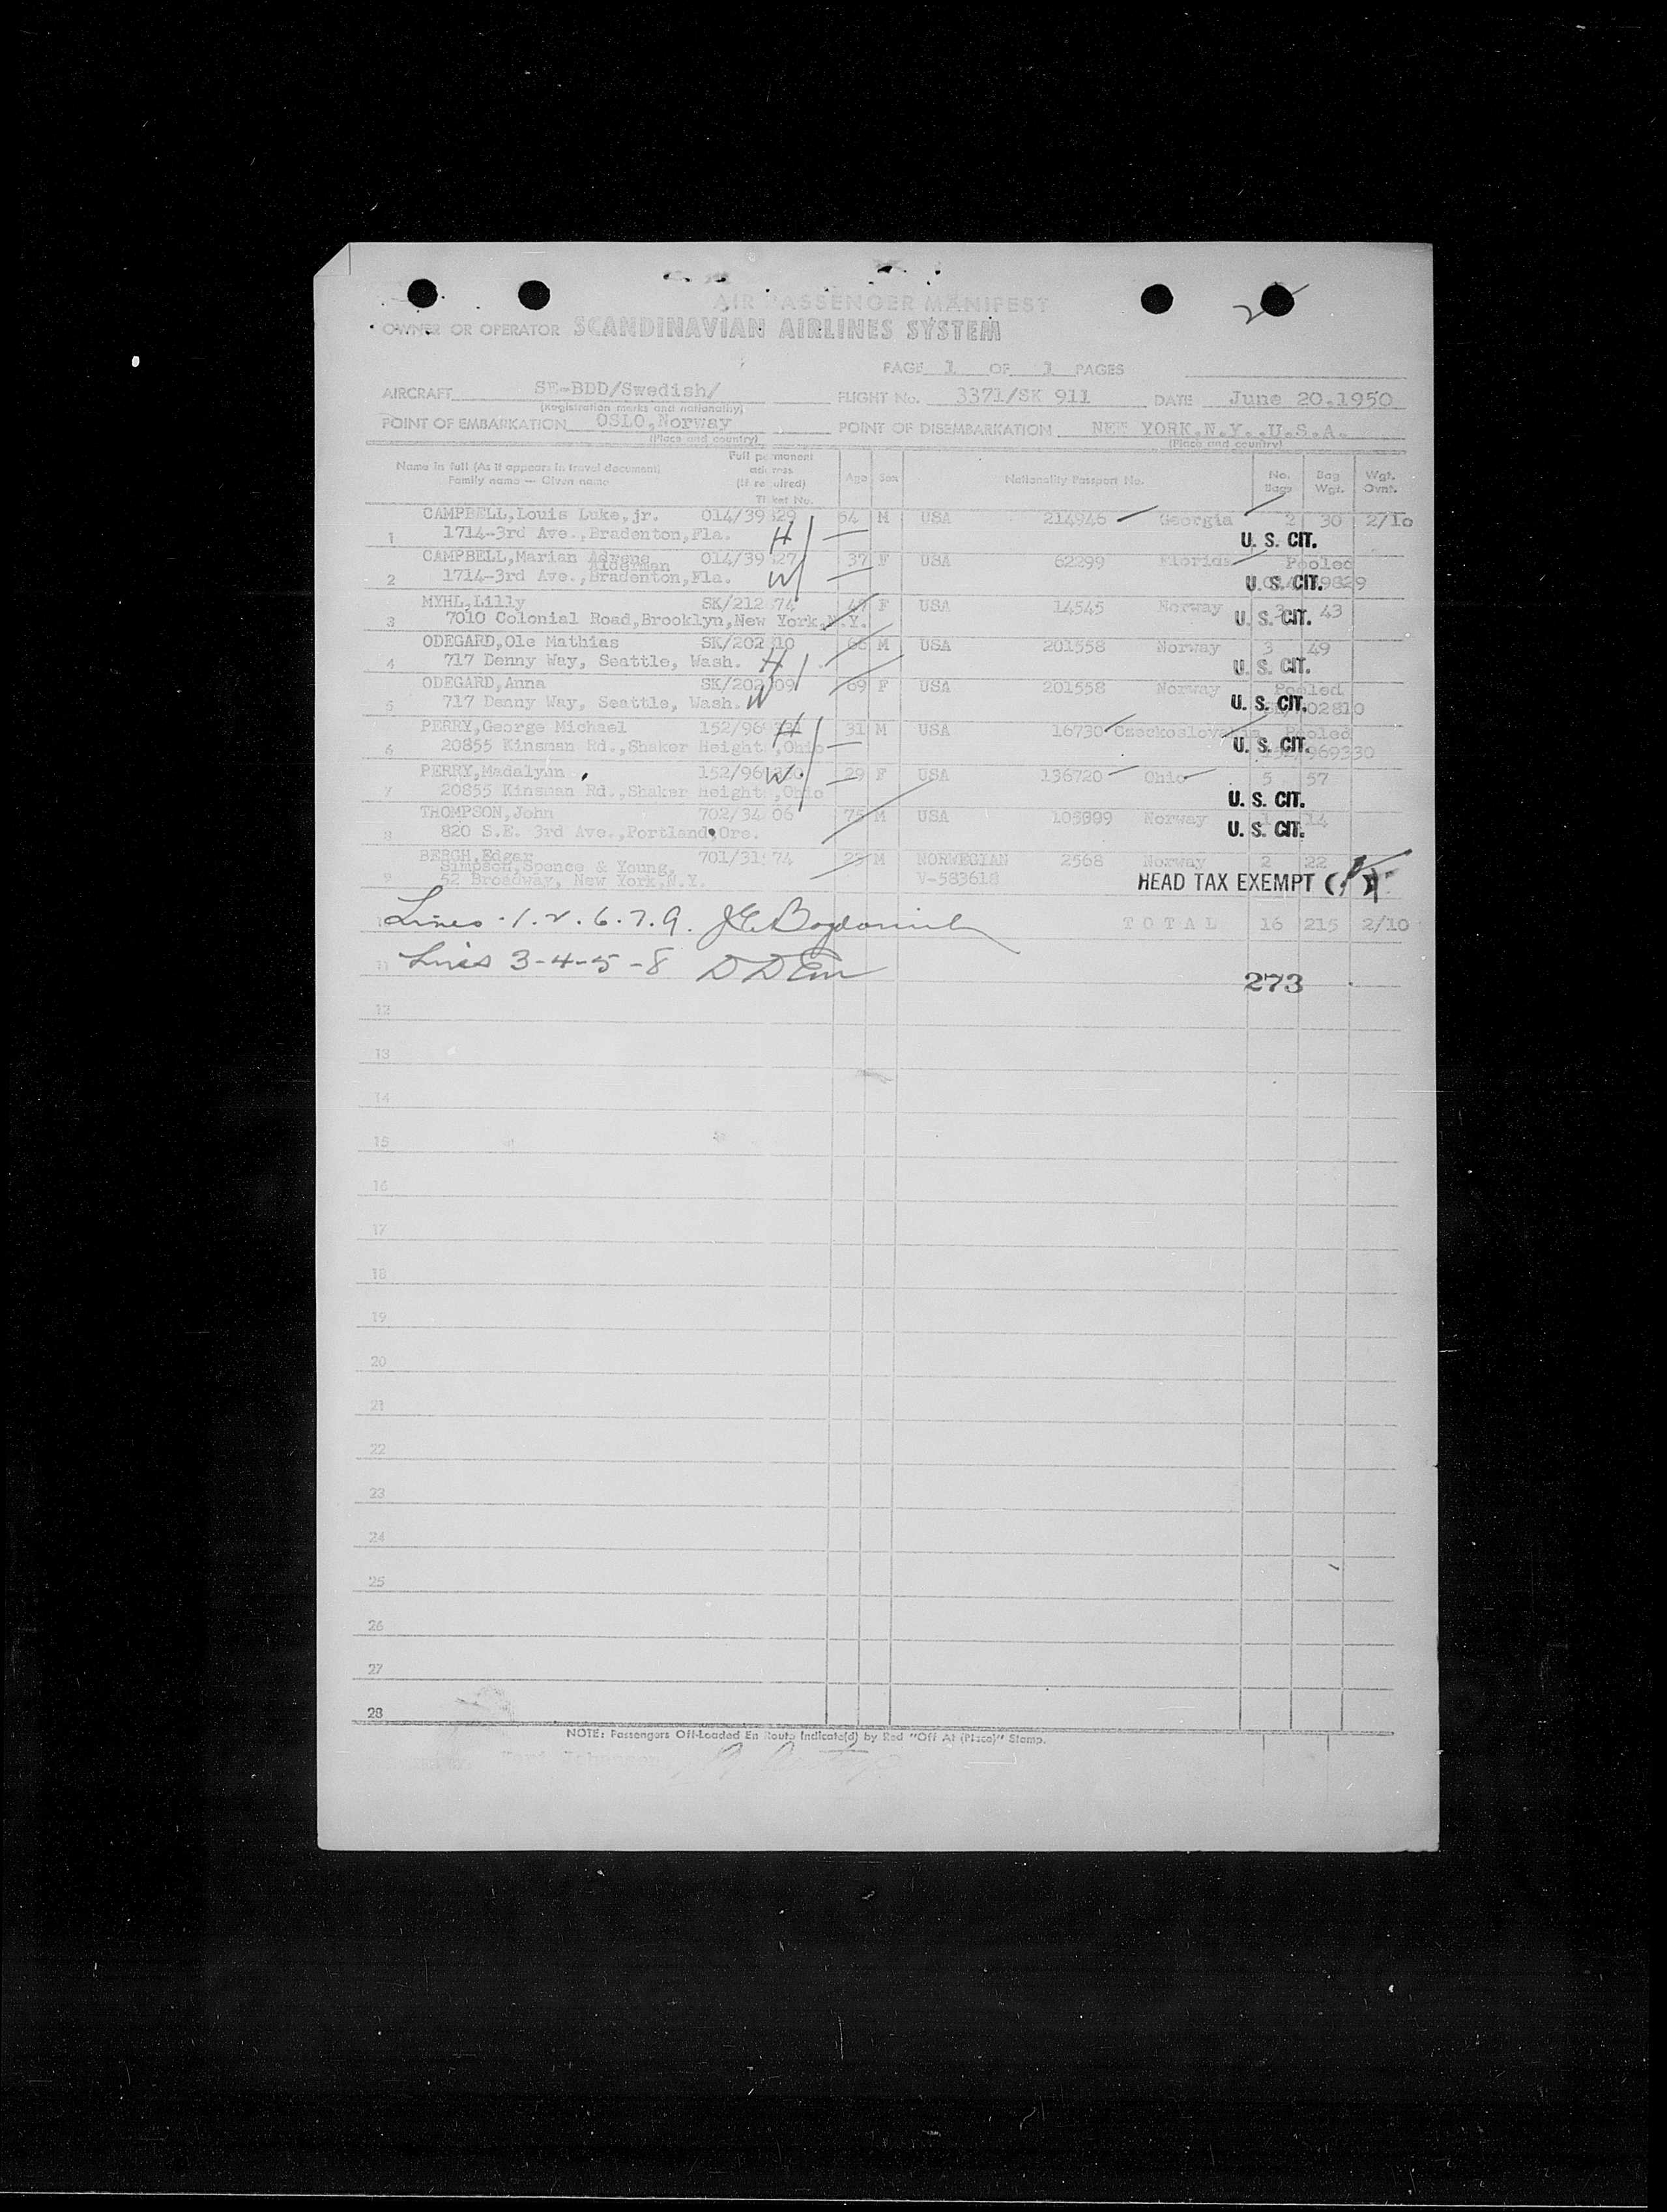 AIR PASSENGER MANIFEST
OWNER OR OPERATOR SCANDINAVIAN AIRLINES SYSTEM
PAGE 1 OF 1 PAGES
AIRCRAFT SE-BDD/Swedish/ FLIGHT No. 3371/SK 911 DATE June 20.1950
(Registration marks and nationality)
POINT OF EMBARKATION OSLO,Norway POINT OF DISEMBARKATION NEW YORK.N.Y..U.S.A.
(Place and country) (Place and country)
Name in full (As it appears in travel document) Family name — Given name Full permanent address (If required) Ticket No. Age Sex Nationality Passport No. No. Bags Bag Wgt. Wgt. Ovnt.
CAMPBELL,Louis Luke,jr. 014/39 829 54 M USA 214946 Georgia 2 30 2/10
1 1714-3rd Ave.,Bradenton,Fla. H U. S. CIT.
CAMPBELL,Marian Adrene 014/39 27 37 F USA 62299 Florida Pooled
Alderman
2 1714-3rd Ave.,Bradenton,Fla. W U. S. CIT. 9829
MYHL,Lilly SK/212 74 F USA 14545 Norway 3 43
3 7010 Colonial Road,Brooklyn,New York,N.Y. U. S. CIT.
ODEGARD,Ole Mathias SK/202 10 66 M USA 201558 Norway 3 49
4 717 Denny Way, Seattle, Wash. H U. S. CIT.
ODEGARD,Anna SK/202 09 69 F USA 201558 Norway Pooled
5 717 Denny Way, Seattle, Wash. W U. S. CIT. 02810
PERRY,George Michael 152/96 H 31 M USA 16730 Czeckoslovakia Pooled
6 20855 Kinsman Rd.,Shaker Height ,Ohio U. S. CIT. 969330
PERRY,Madalynn 152/96 W 29 F USA 136720 Ohio 5 57
7 20855 Kinsman Rd.,Shaker Height ,Ohio U. S. CIT.
THOMPSON,John 702/34 06 75 M USA 105899 Norway 1 14
8 820 S.E. 3rd Ave.,Portland,Ore. U. S. CIT.
BERGH,Edgar 701/31 74 23 M NORWEGIAN 2568 Norway 2 22
Simpson,Spence & Young,
9 52 Broadway, New York,N.Y. V-583618 HEAD TAX EXEMPT
Lines 1. 2. 6. 7. 9. TOTAL 16 215 2/10
11 Lines 3-4-5-8
273
12
13
14
15
16
17
18
19
20
21
22
23
24
25
26
27
28
NOTE: Passengers Off-Loaded En Route Indicate(d) by Red "Off At (Place)" Stamp.